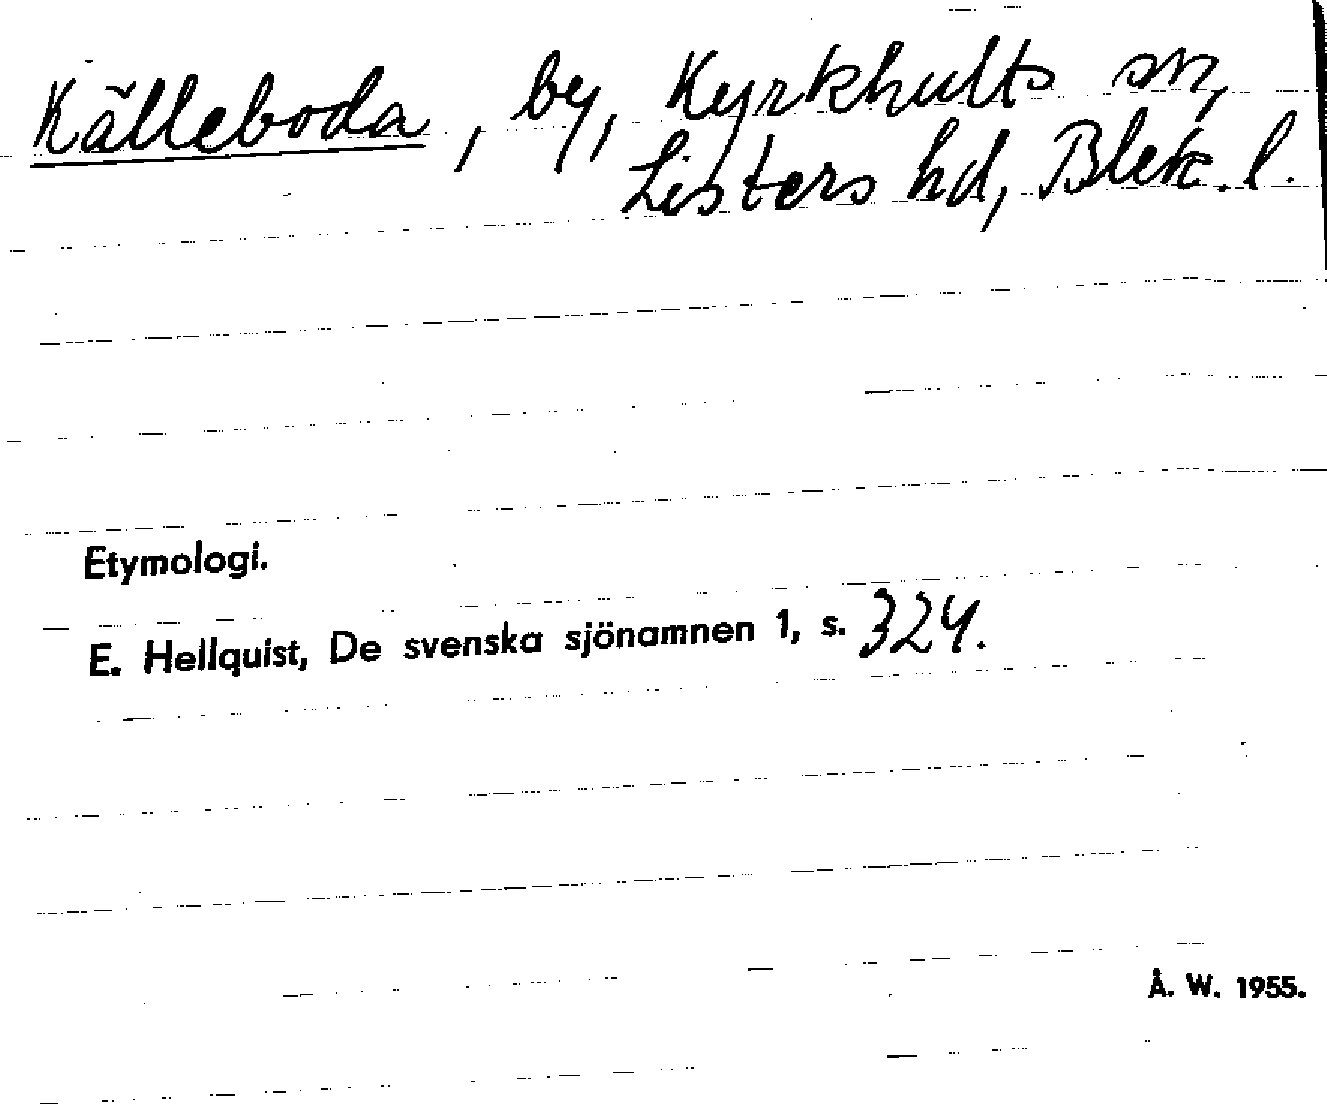 Källeboda, by, Kyrkhults sn,
Listers hd, Blek. l.
Etymologi.
E. Hellquist, De svenska sjönamnen 1, s. 324.
Å. W. 1955.